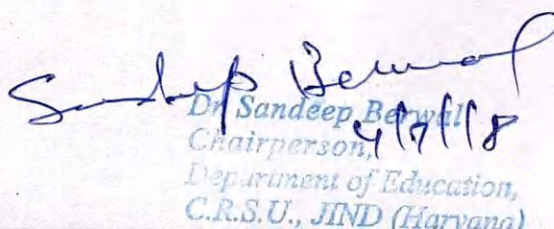 Sandeep Berwal
Dr Sandeep Berwal
4/7/18
Chairperson,
Department of Education,
C.R.S.U., JIND (Haryana)